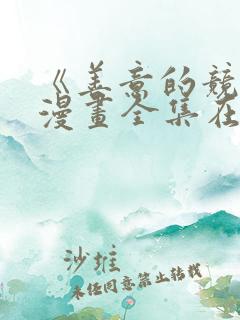 《善意的競
漫畫全集在
沙雅
未经同意禁止转载